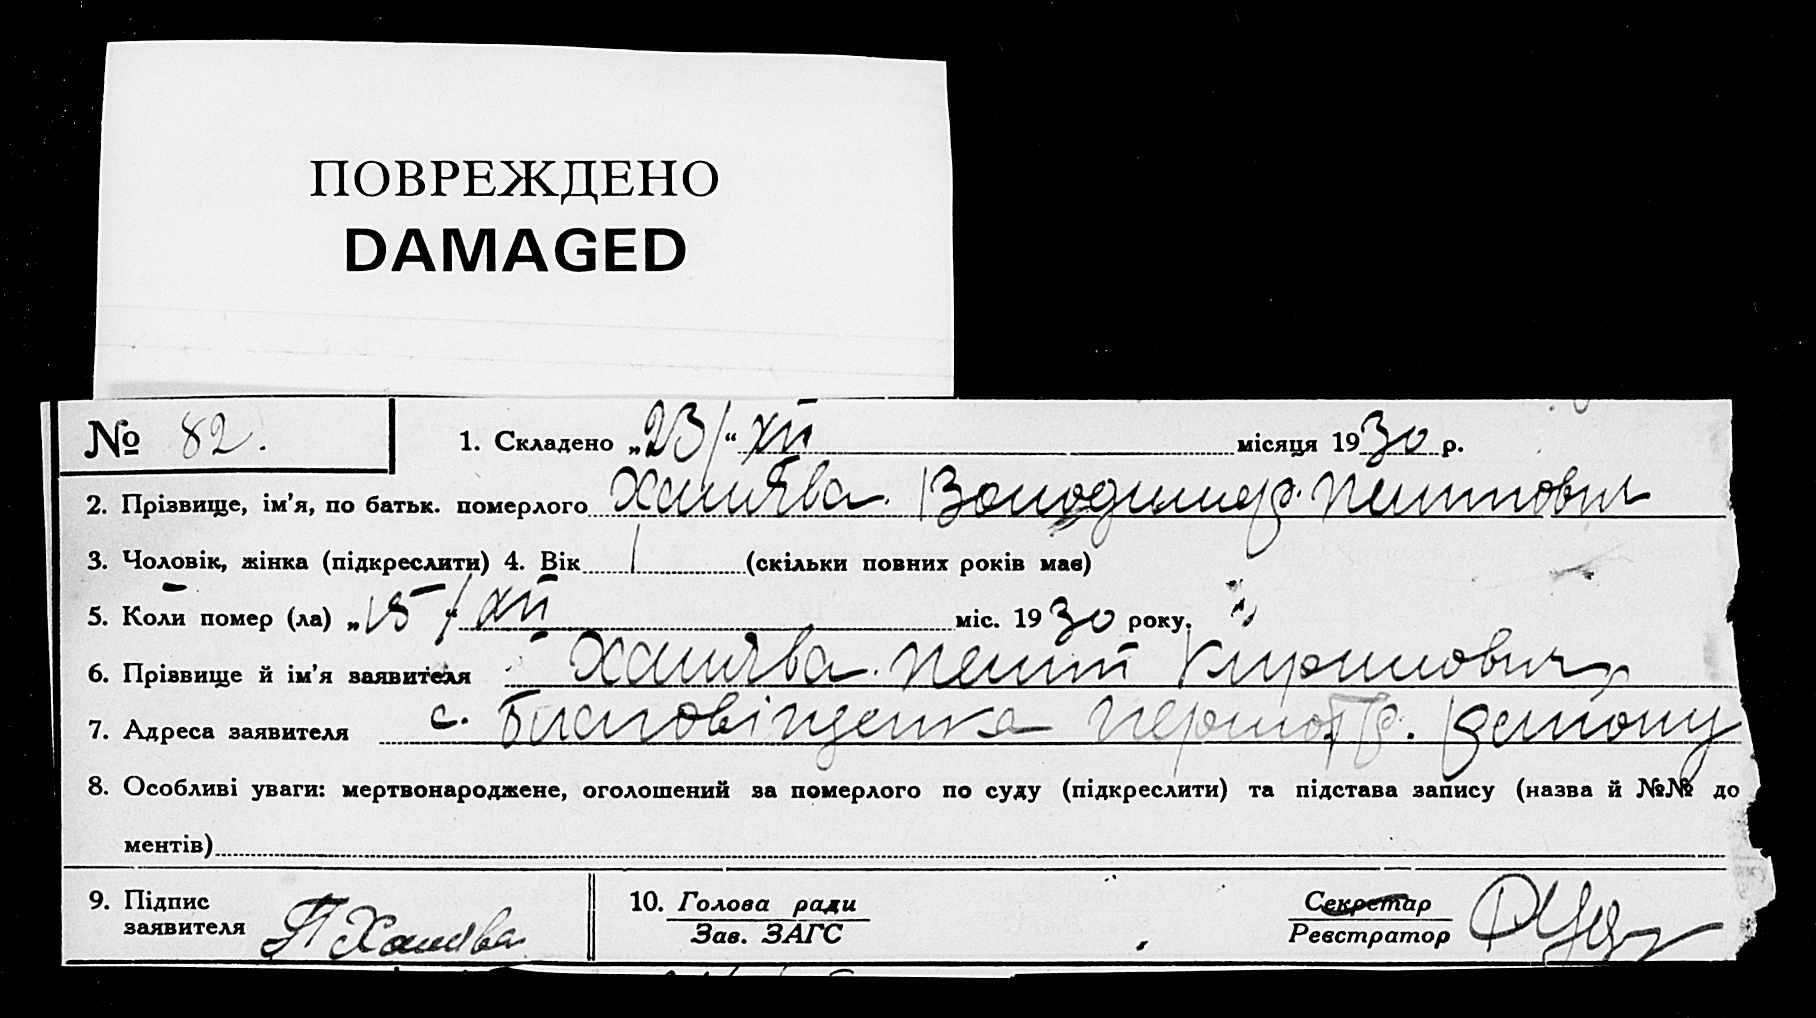 ПОВРЕЖДЕНО
DAMAGED
№ 82.
1. Складено „23/“ XII місяця 1930 р.
2. Прізвище, ім'я, по батьк. померлого Володимир
3. Чоловік, жінка (підкреслити) 4. Вік 1 (скільки повних років має)
5. Коли помер (ла) „15/“ XII міс. 1930 року.
6. Прізвище й ім'я заявителя Кирилович
7. Адреса заявителя с. Благовіщенка
8. Особливі уваги: мертвонароджене, оголошений за померлого по суду (підкреслити) та підстава запису (назва й №№ до
ментів)
9. Підпис
заявителя
10. Голова ради
Зав. ЗАГС
Секретар
Реєстратор